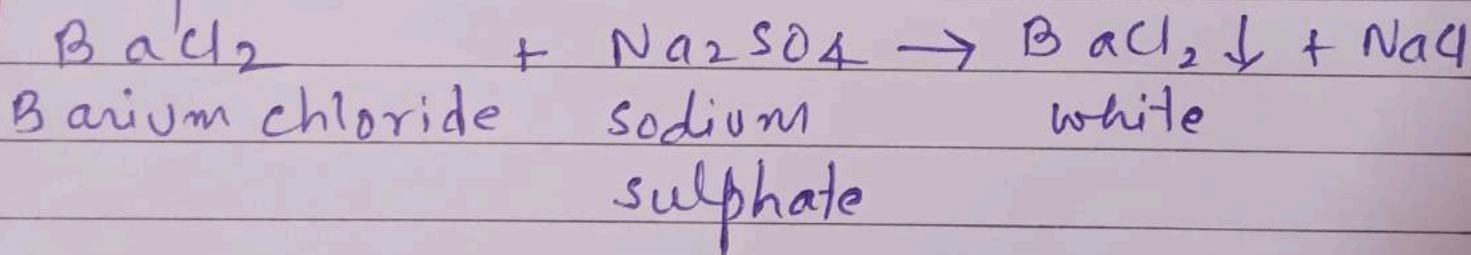 BaCl2 + Na2SO4 → BaCl2 ↓ + NaCl
Barium chloride sodium white
sulphate